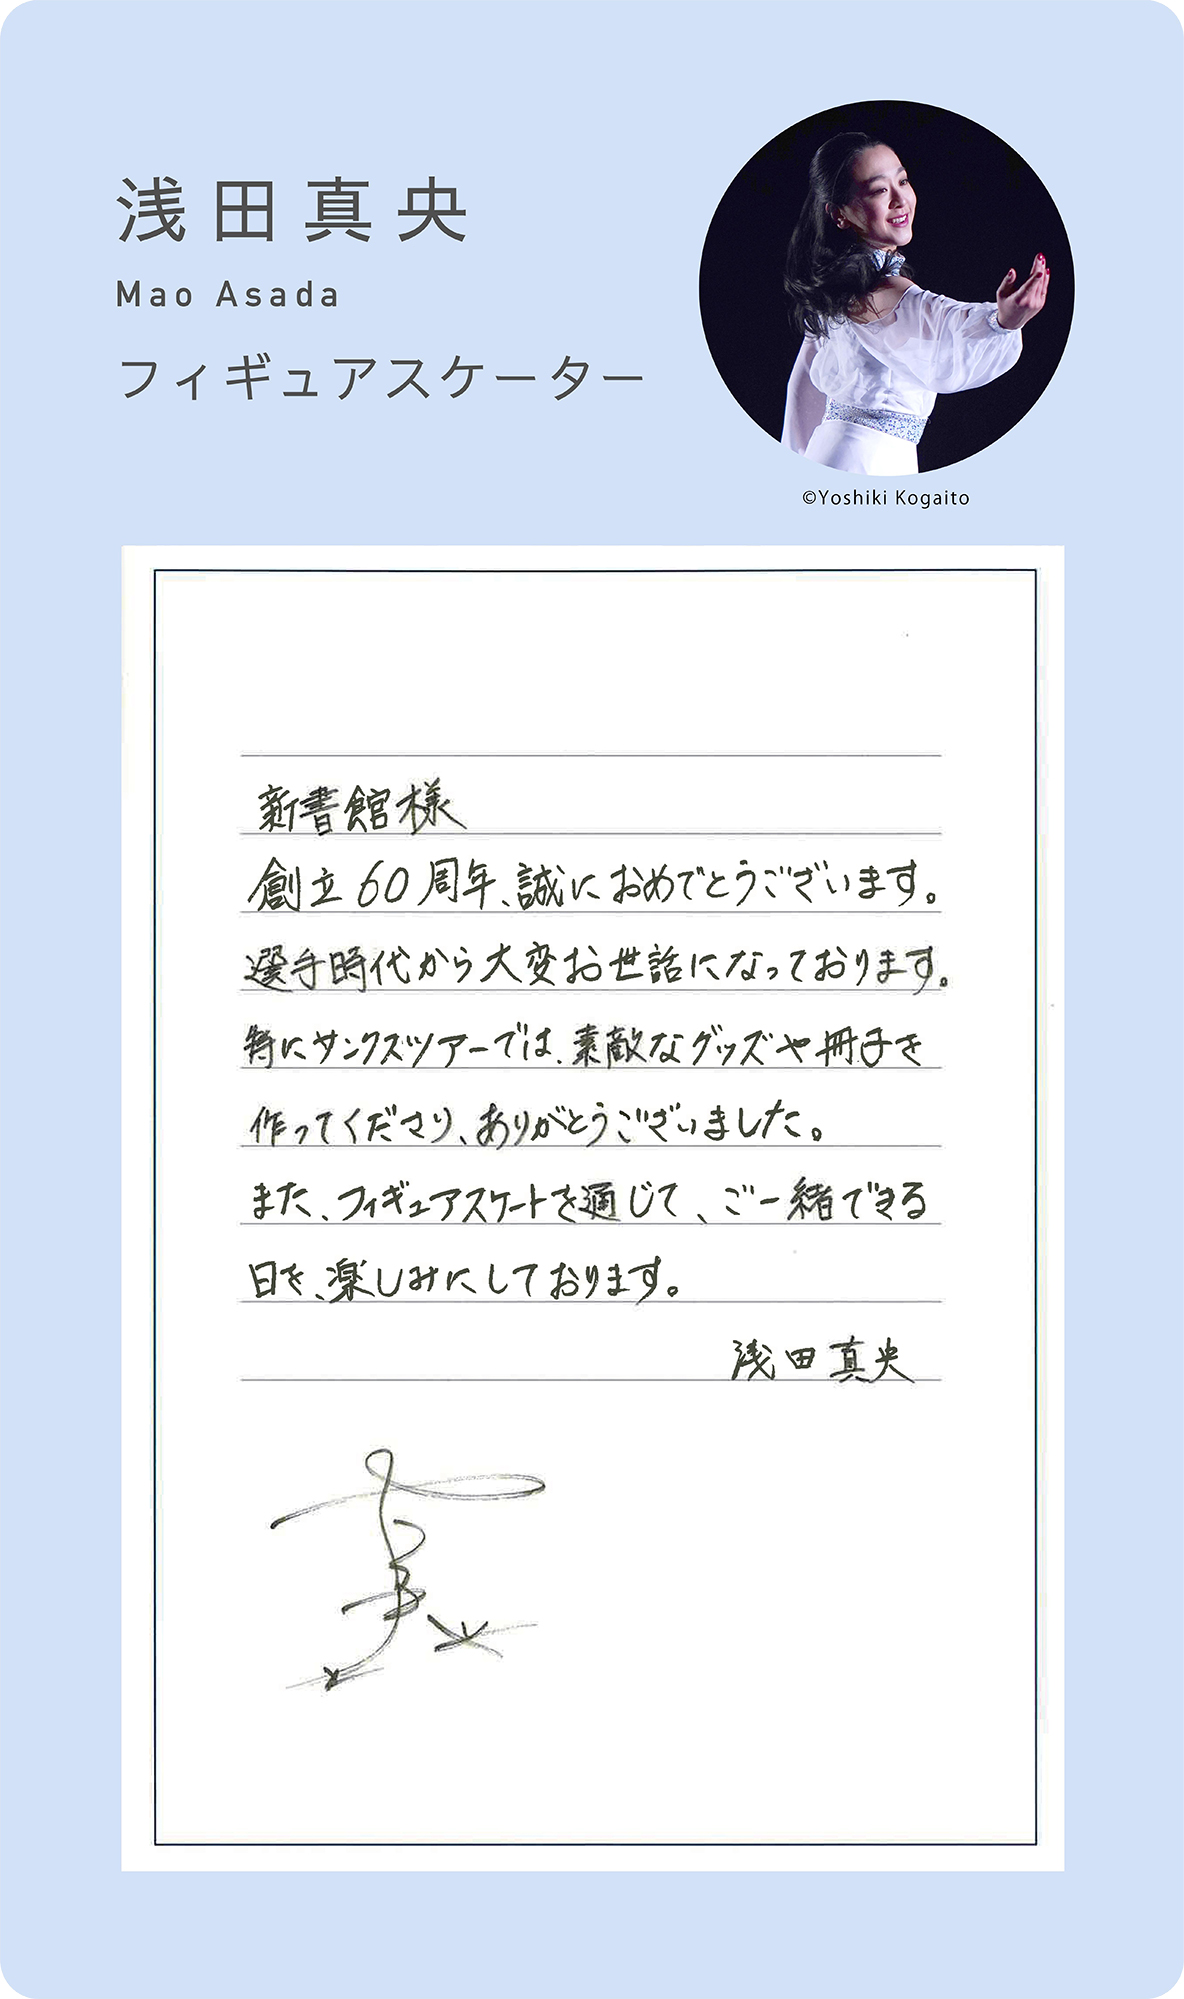 浅田真央
Mao Asada
フィギュアスケーター
©Yoshiki Kogaito
新書館様
創立60周年、誠におめでとうございます。
選手時代から大変お世話になっております。
特にサンクスツアーでは、素敵なグッズや冊子を
作ってくださり、ありがとうございました。
また、フィギュアスケートを通じて、ご一緒できる
日を、楽しみにしております。
浅田真央